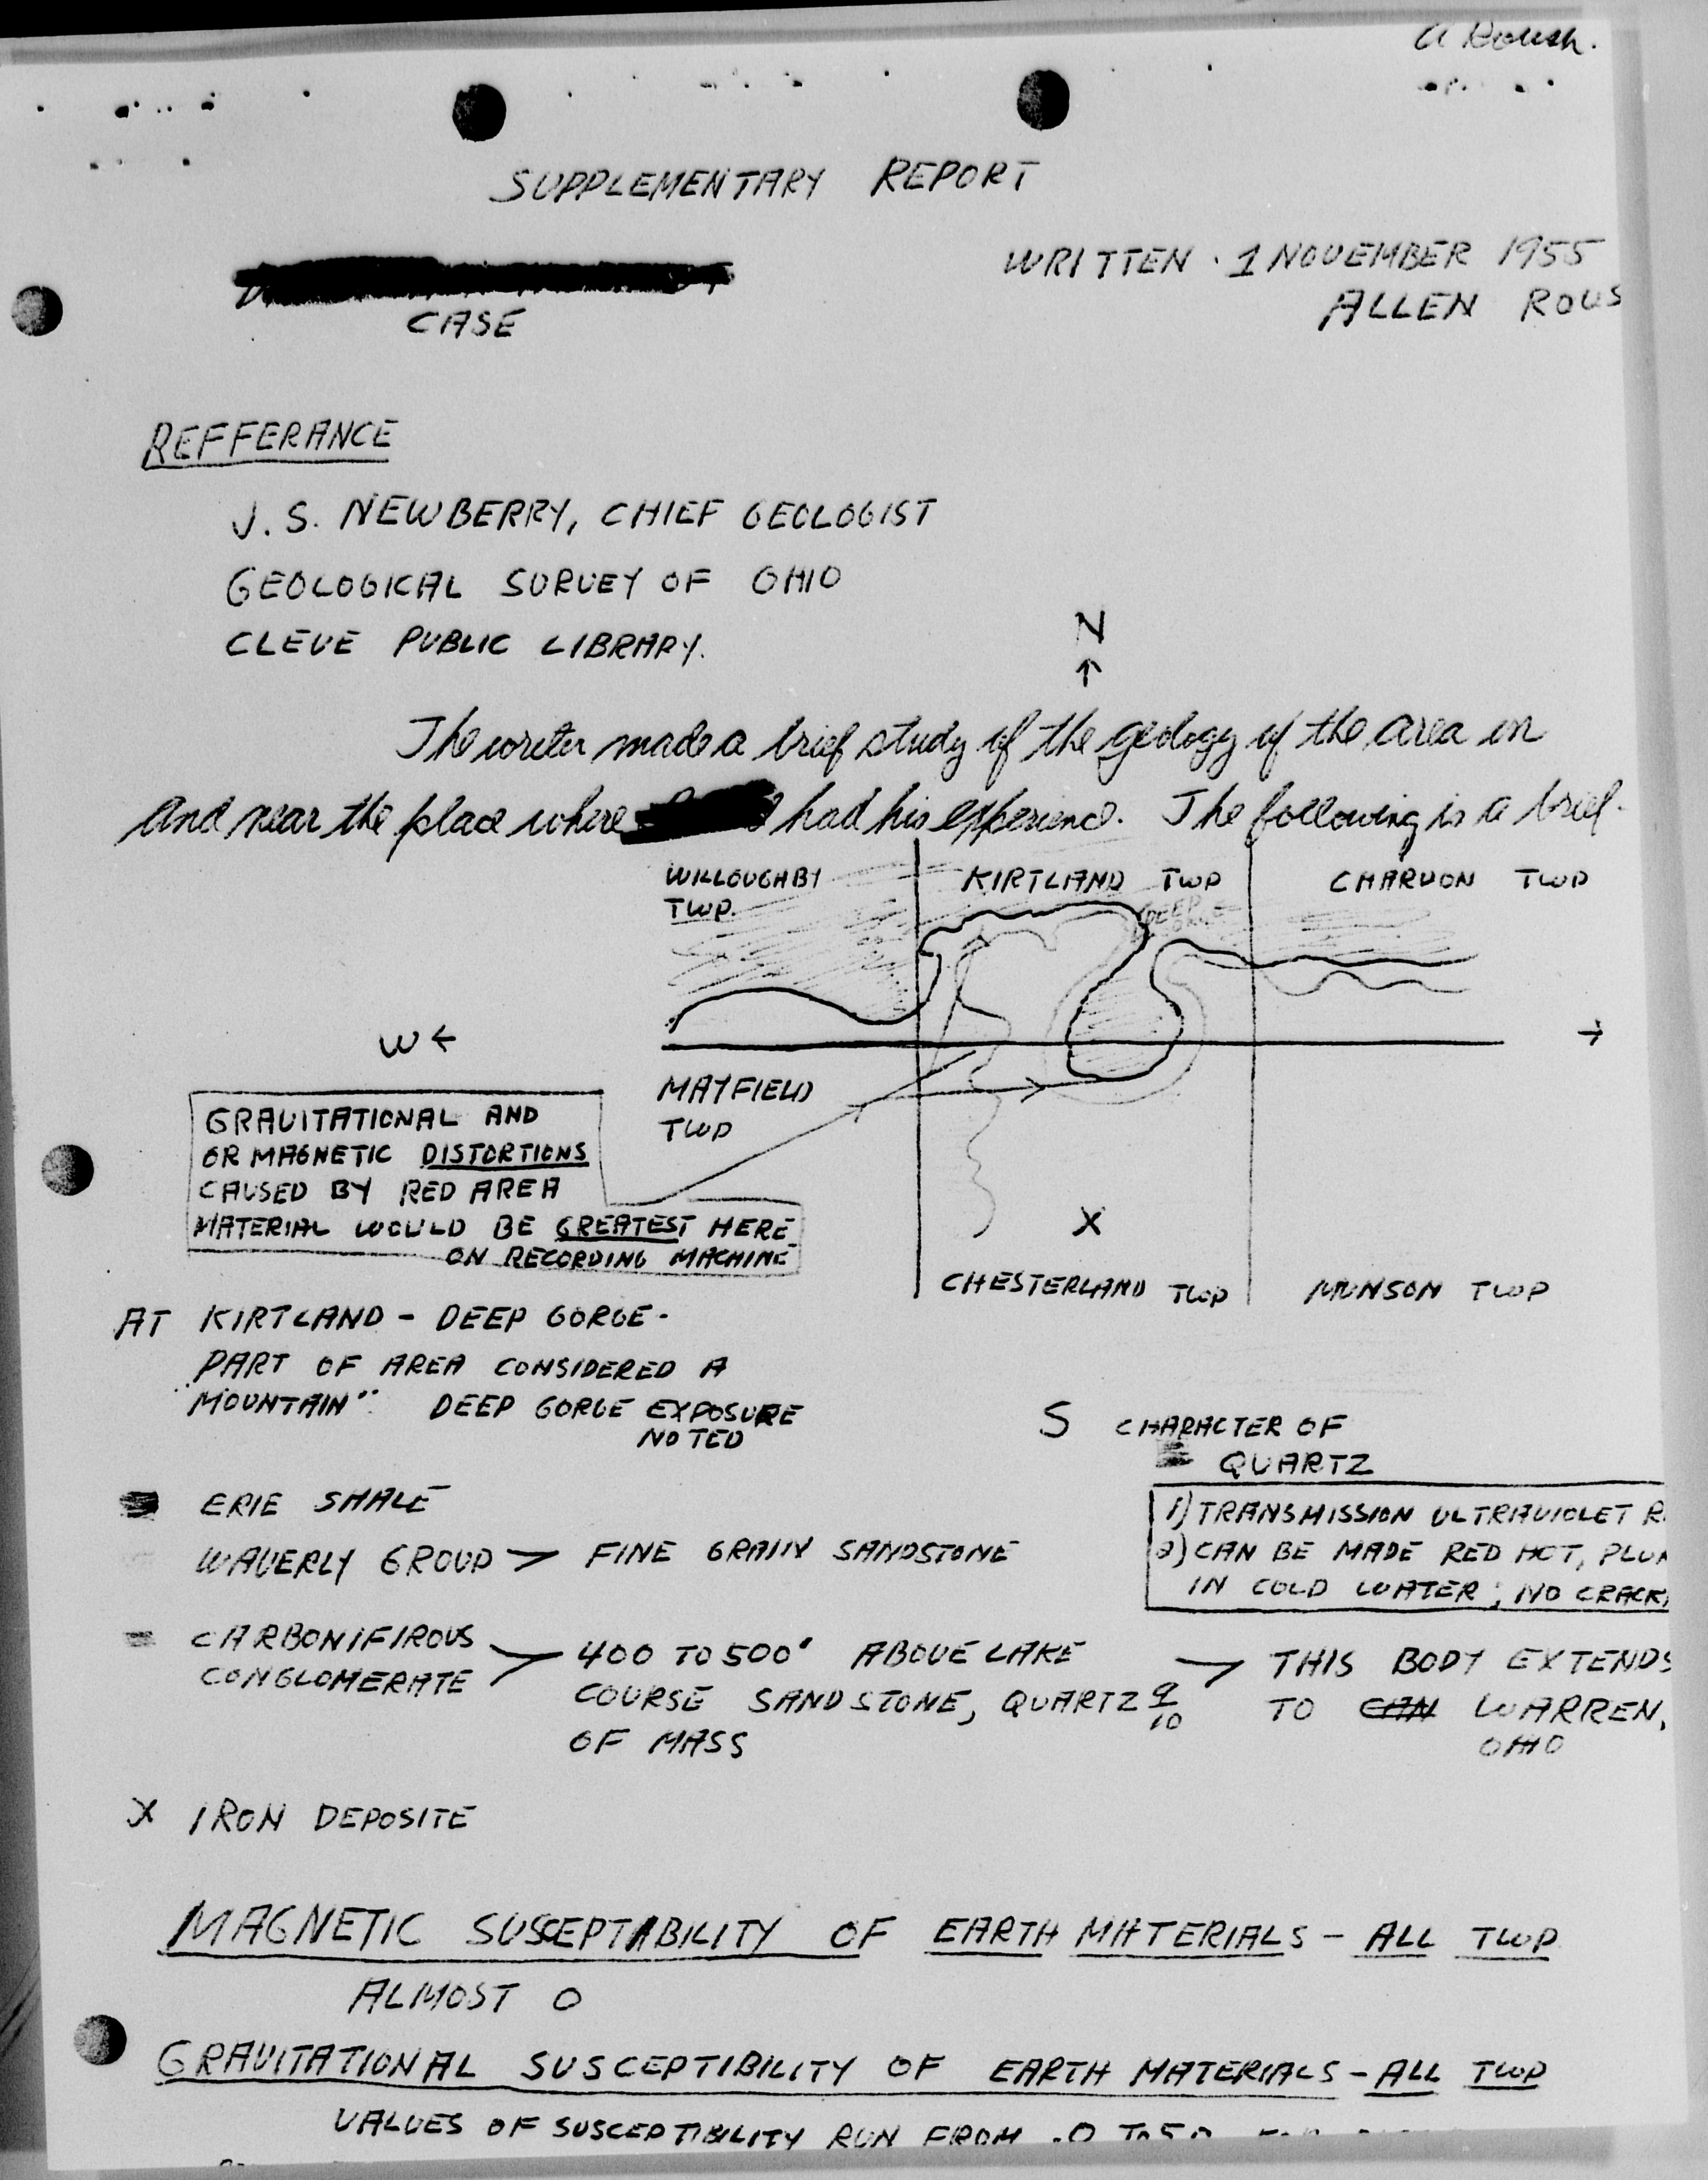 A Roush.
SUPPLEMENTARY REPORT
WRITTEN · 1 NOVEMBER 1955
ALLEN ROUS
CASE
REFFERANCE
J. S. NEWBERRY, CHIEF GEOLOGIST
GEOLOGICAL SURVEY OF OHIO
CLEVE PUBLIC LIBRARY.
N
The writer made a brief study of the geology of the area in
and near the place where had his experience. The following is a brief.
WILLOUGHBY
TWP.
KIRTLAND TWP
CHARDON TWP
DEEP
W
MAYFIELD
TWP
GRAVITATIONAL AND
OR MAGNETIC DISTORTIONS
CAUSED BY RED AREA
MATERIAL WOULD BE GREATEST HERE
ON RECORDING MACHINE
X
CHESTERLAND TWP
MUNSON TWP
AT KIRTLAND - DEEP GORGE -
PART OF AREA CONSIDERED A
"MOUNTAIN" DEEP GORGE EXPOSURE
NOTED
S
CHARACTER OF
QUARTZ
1) TRANSMISSION ULTRAVIOLET R
2) CAN BE MADE RED HOT, PLUN
IN COLD WATER; NO CRACK
ERIE SHALE
WAVERLY GROUP > FINE GRAIN SANDSTONE
CARBONIFIROUS
CONGLOMERATE > 400 TO 500' ABOVE LAKE
COURSE SANDSTONE, QUARTZ 9/10
OF MASS
> THIS BODY EXTENDS
TO CAN WARREN,
OHIO
X IRON DEPOSITE
MAGNETIC SUSCEPTIBILITY OF EARTH MATERIALS - ALL TWP
ALMOST 0
GRAVITATIONAL SUSCEPTIBILITY OF EARTH MATERIALS - ALL TWP
VALUES OF SUSCEPTIBILITY RUN FROM .0 TO 50